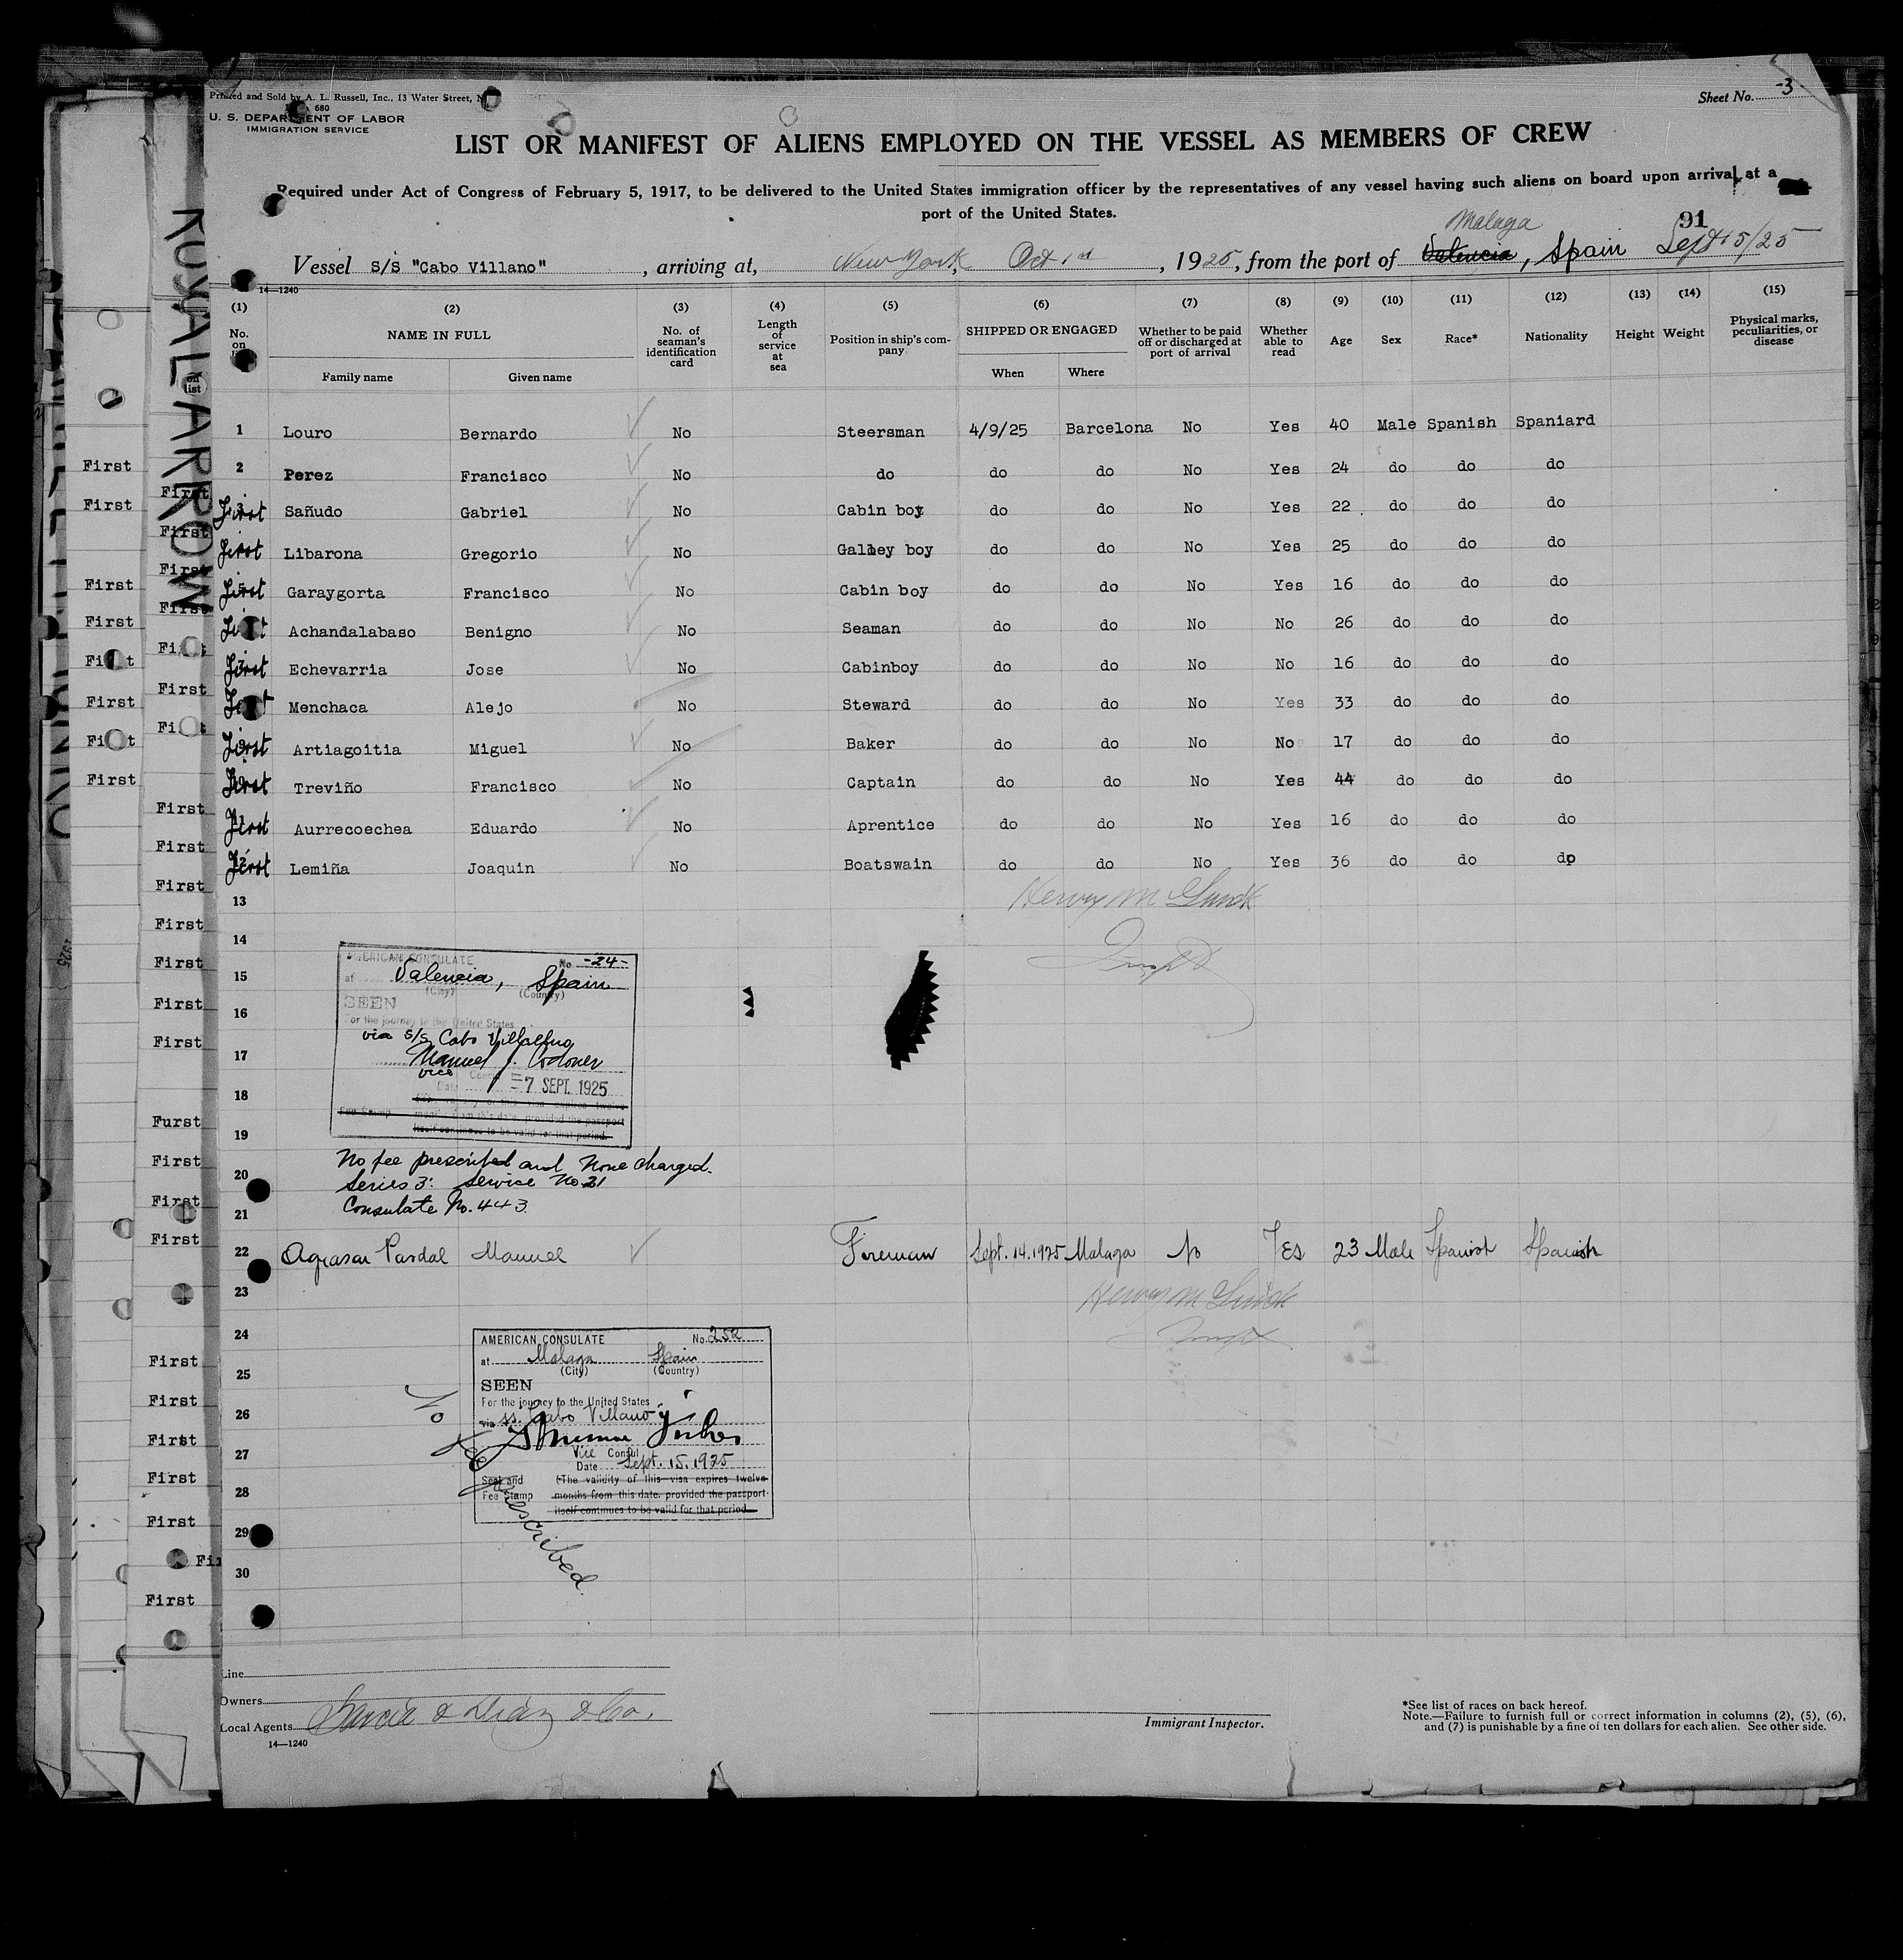 Printed and Sold by A. L. Russell, Inc., 13 Water Street, N
680
U. S. DEPARTMENT OF LABOR
IMMIGRATION SERVICE
Sheet No. -3-
LIST OR MANIFEST OF ALIENS EMPLOYED ON THE VESSEL AS MEMBERS OF CREW
Required under Act of Congress of February 5, 1917, to be delivered to the United States immigration officer by the representatives of any vessel having such aliens on board upon arrival at a
port of the United States.
91
Malaga
Vessel S/S "Cabo Villano", arriving at, New York, Oct 1st, 1925, from the port of Valencia, Spain Sept 15/25
14—1240
(1) (2) (3) (4) (5) (6) (7) (8) (9) (10) (11) (12) (13) (14) (15)
No. on list NAME IN FULL Family name Given name No. of seaman's identification card Length of service at sea Position in ship's company SHIPPED OR ENGAGED When Where Whether to be paid off or discharged at port of arrival Whether able to read Age Sex Race* Nationality Height Weight Physical marks, peculiarities, or disease
1 Louro Bernardo No Steersman 4/9/25 Barcelona No Yes 40 Male Spanish Spaniard
2 Perez Francisco No do do do No Yes 24 do do do
First Sañudo Gabriel No Cabin boy do do No Yes 22 do do do
First Libarona Gregorio No Galley boy do do No Yes 25 do do do
First Garaygorta Francisco No Cabin boy do do No Yes 16 do do do
First Achandalabaso Benigno No Seaman do do No No 26 do do do
First Echevarria Jose No Cabinboy do do No No 16 do do do
First Menchaca Alejo No Steward do do No Yes 33 do do do
First Artiagoitia Miguel No Baker do do No No 17 do do do
First Treviño Francisco No Captain do do No Yes 44 do do do
First Aurrecoechea Eduardo No Aprentice do do No Yes 16 do do do
First Lemiña Joaquin No Boatswain do do No Yes 36 do do do
13
14
15
16
17
18
19
20
21
AMERICAN CONSULATE No -24-
at Valencia, Spain
(City) (Country)
SEEN
For the journey to the United States
via S/S Cabo Villano
Manuel J. Codoner
vice Consul
Date =7 SEPT. 1925
Fee Stamp months from this date, provided the passport
itself continues to be valid for that period.
No fee prescribed and None charged.
Series 3: Service No. 31
Consulate No. 443
22 Agrasar Pardal Manuel Fireman Sept. 14. 1925 Malaga No Yes 23 Male Spanish Spanish
23
24
25
26
27
28
29
30
AMERICAN CONSULATE No. 252
at Malaga Spain
(City) (Country)
SEEN
For the journey to the United States
via ss. Cabo Villano
Vice Consul
Date Sept. 15. 1925
Seal and (The validity of this visa expires twelve
Fee Stamp months from this date, provided the passport
itself continues to be valid for that period
No fee prescribed.
Line
Owners
Local Agents Garcia & Diaz & Co.
14—1240
Immigrant Inspector.
*See list of races on back hereof.
Note.—Failure to furnish full or correct information in columns (2), (5), (6),
and (7) is punishable by a fine of ten dollars for each alien. See other side.
ROYAL ARROW
First
First
First
First
First
First
First
First
First
First
First
First
First
First
First
First
First
First
First
First
First
First
Furst
First
First
First
First
First
First
First
First
First